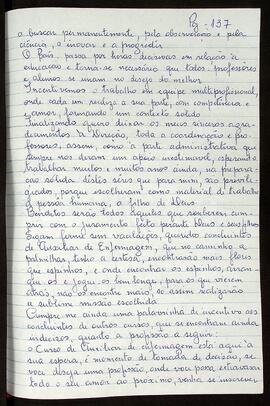 Pg - 137
a buscar permanentemente, pela observação e pela
ciência, o inovar e a progredir.
O País, passa por horas decisivas em relação à
educação e torna-se necessário que todos professôres
e alunos se unam no desejo do melhor.
Incentivemos o trabalho em equipe multiprofissional,
onde cada um realiza a sua parte, com competência e
amor, formando um contexto sólido
Finalizando quero deixar os meus sinceros agra-
decimentos à Direção, toda a coordenação e pro-
fessores, assim, como a parte administrativa que
sempre nos deram um apoio inestimável, esperando
trabalhar muitos e muitos anos ainda, na prepara-
ção sólida desta série que para mim, são privile-
giados, porque escolheram como material de trabalho
a pessoa humana, a filho de Deus.
Benditos serão todos aqueles que souberem cum-
prir com o juramento feito perante Deus e seus
Sigam firme sem vacilações, queridos concluintes
de Auxiliar de Enfermagem, que no caminho a
palmilhar, tenho a certeza, encontrarão mais flores
que espinhos, e onde encontrar os espinhos, arran-
que-os e jogue-os bem longe, para os que vierem
atrás, não os encontre mais, só assim realizarão
a sublime missão escolhida.
Cumpre-me ainda uma palavrinha de incentivo aos
concluintes de outros cursos, que se encontram ainda
indecisos, quanto a profissão a seguir:
o Curso de Auxiliar de enfermagem está aqui à
sua espera, é momento de tomada de decisão, se
você deseja uma profissão, onde você possa extravasar
todo o seu amor ao próximo, venha se inscrever